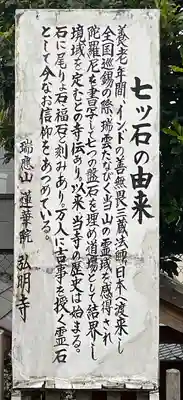 七ツ石の由来
養老年間、インドの善無畏三蔵法師日本へ渡来し
全国巡錫の際、瑞雲たなびく当山の霊域を感得され
陀羅尼を書写して七つの盤石を埋め道場として結界し
境域を定めたとの寺伝あり。以来、当寺の歴史は始まる。
石に尾りょ石福石と刻みあり。万人に吉事を授く霊石
として今なお信仰をあつめている。
瑞應山 蓮華院 弘明寺